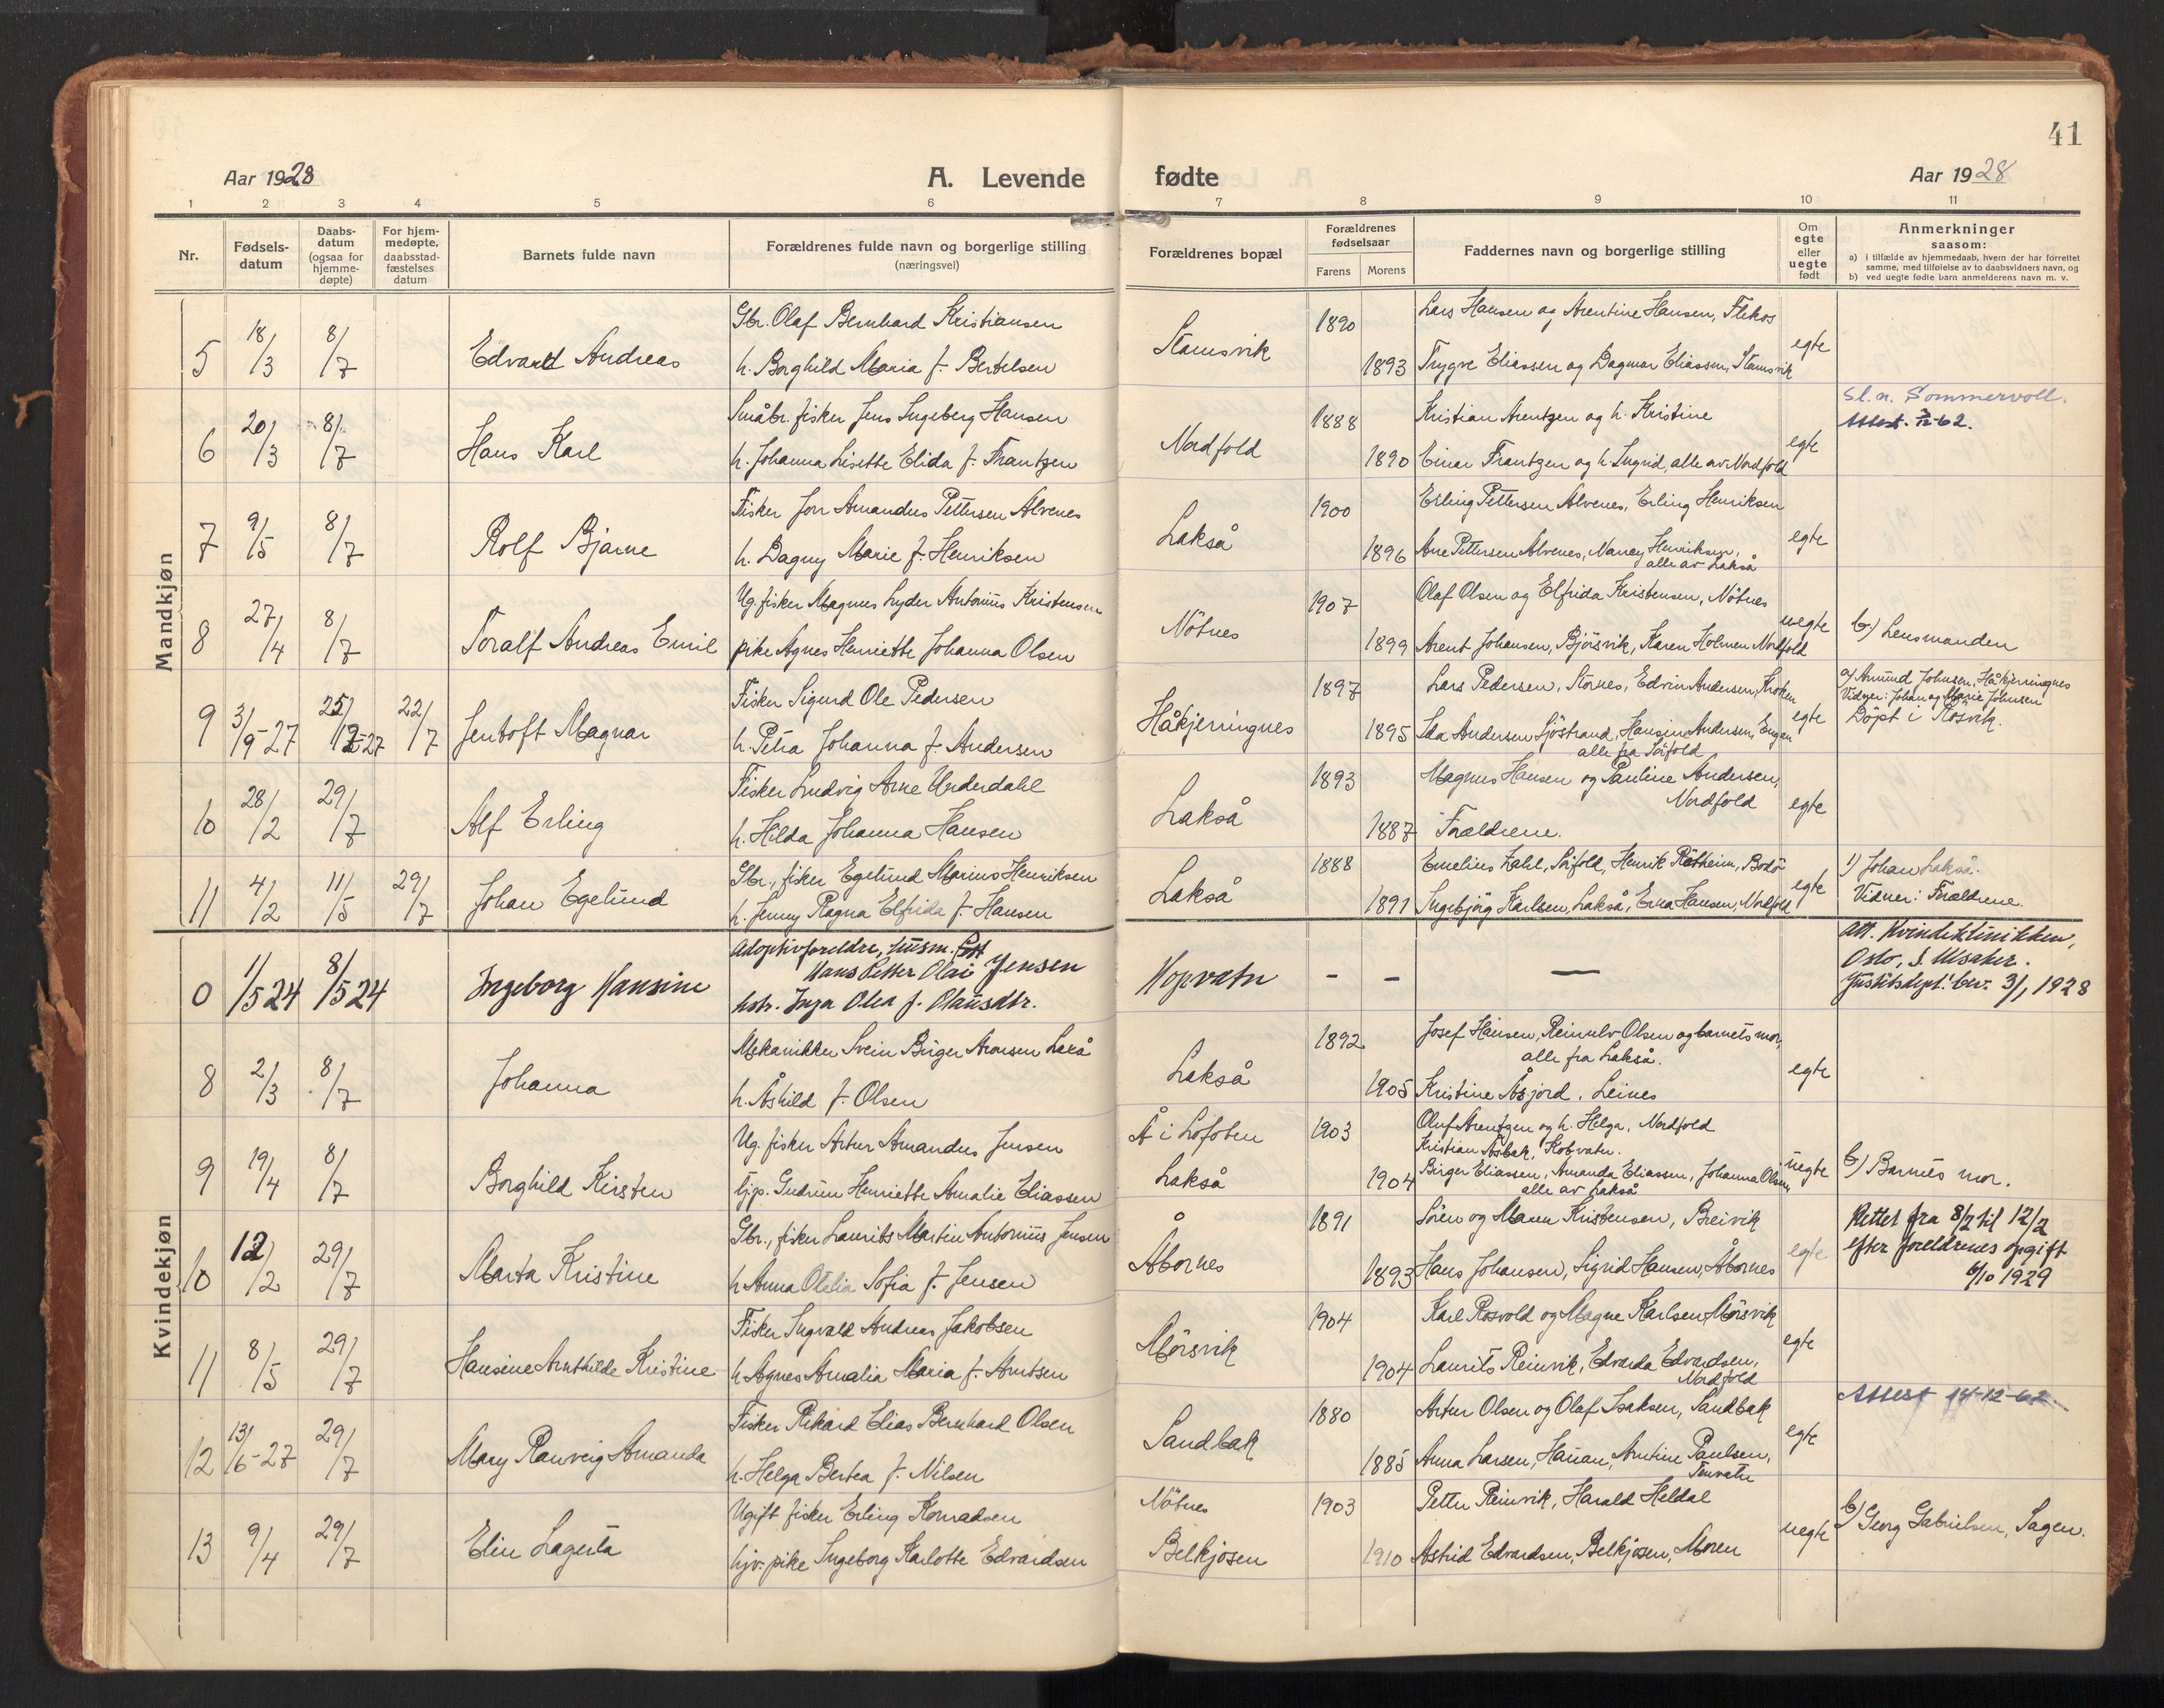 41
Aar 1928
A. Levende fødte
Aar 1928
1 2 3 4 5 6 7 8 9 10 11
Nr.
Fødsels-
datum
Daabs-
datum
(ogsaa for
hjemme-
døpte)
For hjem-
medøpte,
daabsstad-
fæstelses
datum
Barnets fulde navn
Forældrenes fulde navn og borgerlige stilling
(næringsvei)
Forældrenes bopæl
Forældrenes
fødselsaar
Farens Morens
Faddernes navn og borgerlige stilling
Om
egte
eller
uegte
født
Anmerkninger
saasom:
a) i tilfælde av hjemmedaab, hvem der har forrettet
samme, med tilføielse av to daabsvidners navn, og
b) ved uegte fødte barn anmelderens navn m. v.
Mandkjøn
5 18/3 8/7 Edvard Andreas
Gbr. Olaf Bernhard Kristiansen
h. Borghild Maria f. Bertelsen
Stamsvik 1890 1893
Lars Hansen og Arentine Hansen, Flekos
Trygve Eliassen og Dagmar Eliassen, Stamsvik
egte
6 20/3 8/7 Hans Karl
Småbr. fisker Jens Ingeberg Hansen
h. Johanna Lisette Elida f. Frantzen
Nordfold 1888 1890
Kristian Arentzen og h. Kristine
Einar Frantzen og h. Ingrid, alle av Nordfold
egte
Sl.n. Sommervoll.
Attest. 62.
7 9/5 8/7 Rolf Bjarne
Fisker Jon Amandus Pettersen Alvenes
h. Dagny Marie f. Henriksen
Lakså 1900 1896
Erling Pettersen Alvenes, Erling Henriksen
Ane Pettersen Alvenes, Nancy Henriksen,
alle av Lakså
egte
8 27/4 8/7 Toralf Andreas Emil
Ug. fisker Magnus Lyder Antonius Kristensen
pike Agnes Henriette Johanna Olsen
Nötnes 1907 1899
Olaf Olsen og Elfrida Kristensen, Nötnes
Arent Johansen, Bjørsvik, Karen Holmen Nordfold
uegte
b.) Lensmanden
9 3/9-27 25/12-27 22/7 Jentoft Magnar
Fisker Sigurd Ole Pedersen
h. Petra Johanna f. Andersen
Håkjerringnes 1897 1895
Lars Pedersen, Störnes, Edvin Andersen, Kroken
Ida Andersen Sjöstrand, Hansine Andersen, Engan
alle fra Sörfold
egte
a) Amund Johnsen, Håkjerringnes
Vidner: Johan og Marie Johnsen
Döpt i Rösvik.
10 28/2 29/7 Alf Erling
Fisker Ludvig Arne Underdahl
h. Hilda Johanna Hansen
Lakså 1893 1887
Magnus Hansen og Pauline Andersen,
Nordfold
Forældrene.
egte
11 4/2 11/5 29/7 Johan Egelund
Gbr., fisker Egelund Marius Henriksen
h. Jenny Ragna Elfrida f. Hansen
Lakså 1888 1891
Emelius Zahl, Sörfold, Henrik Råtheim, Bodö
Ingebjörg Karlsen, Lakså, Erna Hansen, Nordfold
egte
1) Johan Lakså.
Vidner: Forældrene.
Kvindekjøn
0 1/5 24 8/5 24 Ingeborg Hansine
Adoptivforeldre, husm.
Hans Petter Olai Jensen
hstr. Inga Olea f. Olausdtr.
Hopvatn - - -
Att. Kvindeklinikken,
Oslo, S. Usaker.
Justitsdept. bev. 3/1, 1928
8 2/3 8/7 Johanna
Mekanikker Svein Birger Aronsen Laxå
h. Åshild f. Olsen
Lakså 1892 1905
Josef Hansen, Reinulv Olsen og barnets mor,
alle fra Lakså.
Kristine Åsjord, Leines
egte
9 19/4 8/7 Borghild Kirsten
Ug. fisker Artur Amandus Jensen
tjp. Gudrun Henriette Amalie Eliassen
Å i Lofoten
Lakså 1903 1904
Oluf Arentzen og h. Helga, Nordfold
Kristian Åsbak, Kobvatn.
Birger Eliassen, Amanda Eliassen, Johanna Olsen,
alle av Lakså
uegte
b) Barnets mor.
10 12/2 29/7 Marta Kristine
Gbr., fisker Laurits Martin Antonius Jensen
h Anna Otelia Sofia f. Jensen
Åbornes 1891 1893
Sören og Maren Kristensen, Breivik
Hans Johansen, Sigrid Hansen, Åbornes
egte
Rettet fra 8/2 til 12/2
efter foreldrenes opgift
6/10 1929
11 8/5 29/7 Hansine Arnthilde Kristine
Fisker Ingvald Andreas Jakobsen
h Agnes Amalia Maria f. Arntsen
Mörsvik 1904 1904
Karl Rosvold og Magne Karlsen, Mörsvik
Laurits Reinvik, Edvarda Edvardsen,
Nordfold
egte
12 13/6-27 29/7 Mary Ranveig Amanda
Fisker Rikard Elias Bernhard Olsen
h. Helga Bertea f. Nilsen
Sandbak 1880 1885
Artur Olsen og Olaf Isaksen, Sandbak
Anna Larsen, Hauan, Arntine Paulsen,
Tenvatn
egte
Attest 14-12-62.
13 9/4 29/7 Elin Lagerta
Ugift fisker Erling Konradsen
hjv. pike Ingeborg Karlotte Edvardsen
Nötnes
Belkjosen 1903 1910
Petter Reinvik, Harald Heldal
Astrid Edvardsen, Belkjosen, Moren
uegte
b) Georg Gabrielsen, Sagen.